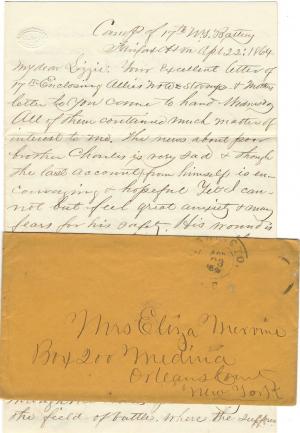 Camp of 17th N.Y. Battery
Fairfax Apr 22d 1864
My dear Lizzie: Your excellent letter of
17th Enclosing Allies Note & stamps & Mothers
letter to you came to hand Wednesday
All of them contained much matter of
interest to me. The news about poor
brother Charles is very sad & though
the last account from himself is en-
couraging & hopeful Yet I can
not but feel great anxiety & many
fears for his safty. His wound is
Mrs Eliza Mervine
Box 200 Medina
Orleans County
New York
the field of battle. where the